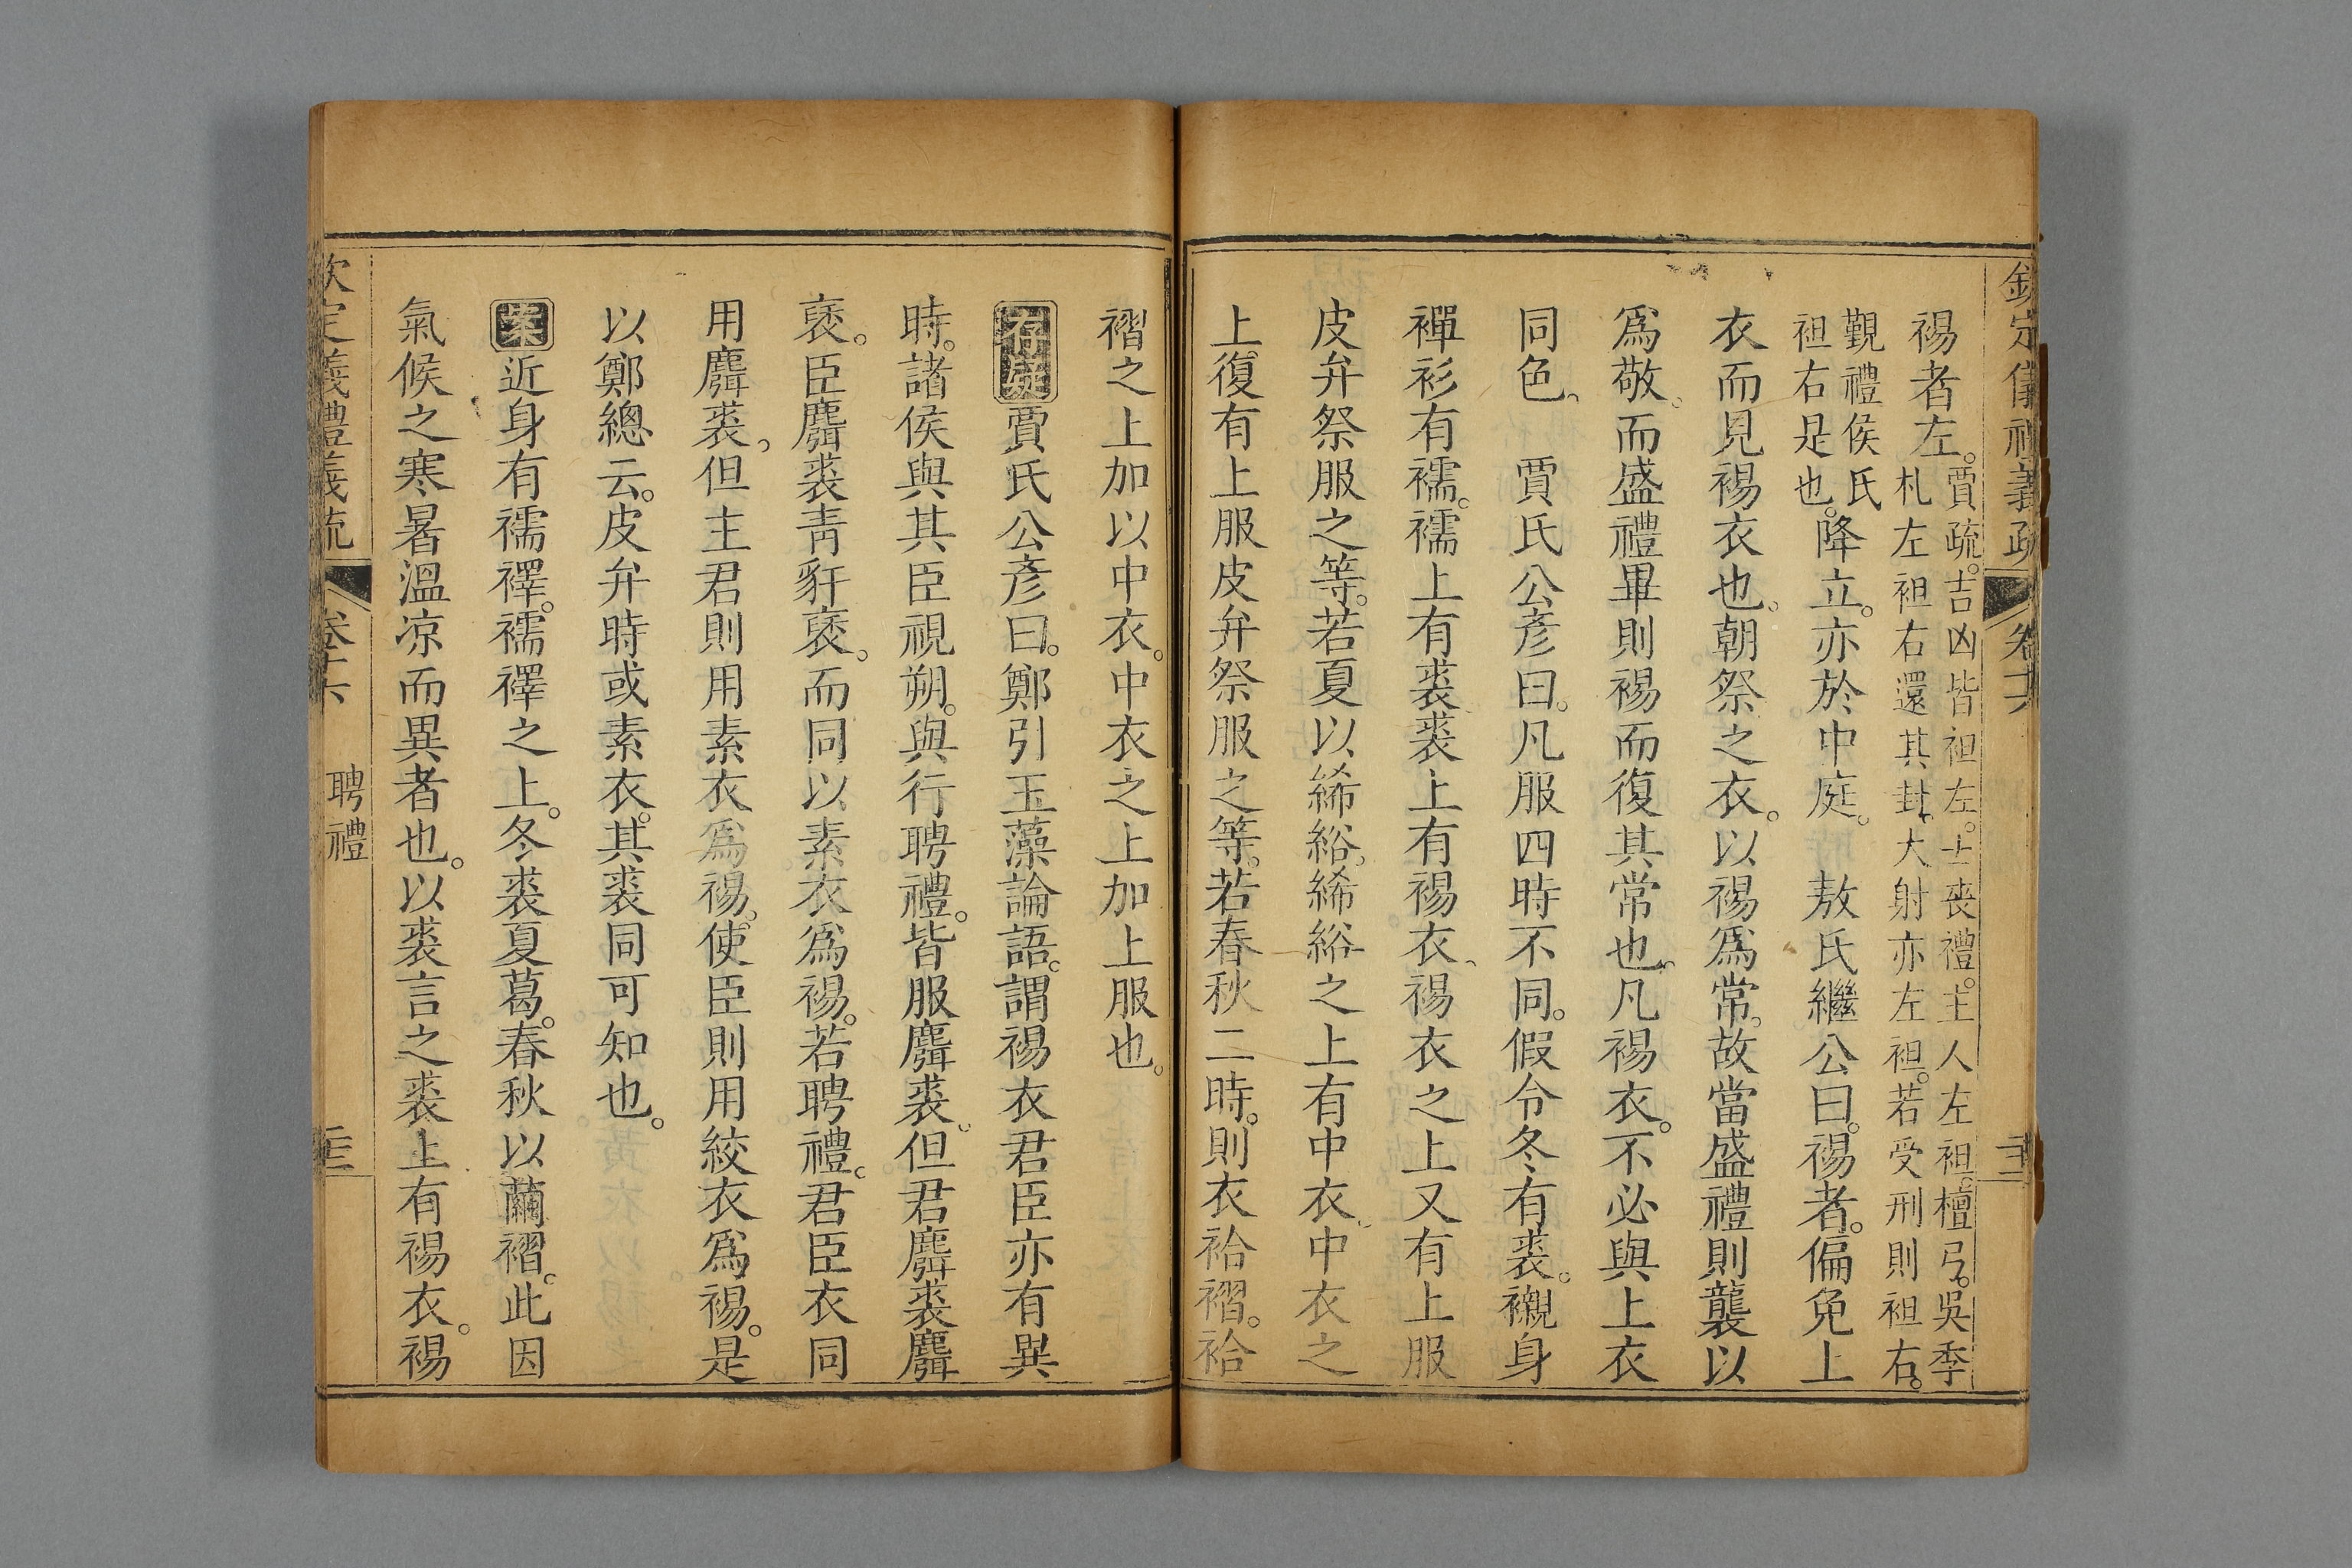 欽定儀禮義疏 卷十六 二十三
裼者左。賈疏。吉凶皆袒左。士喪禮。主人左袒。檀弓。吳季
札左袒右還其封。大射亦左袒。若受刑則袒右。
覲禮侯氏
袒右是也。降立。亦於中庭。 敖氏繼公曰。裼者。偏免上
衣而見裼衣也。朝祭之衣。以裼爲常。故當盛禮則襲以
爲敬。而盛禮畢則裼而復其常也。凡裼衣。不必與上衣
同色。 賈氏公彥曰。凡服四時不同。假令冬有裘。襯身
襌衫有襦。襦上有裘。裘上有裼衣。裼衣之上又有上服
皮弁祭服之等。若夏以絺綌。絺綌之上有中衣。中衣之
上。復有上服皮弁祭服之等。若春秋二時。則衣袷褶。袷
褶之上加以中衣。中衣之上加上服也。
存疑 賈氏公彥曰。鄭引玉藻論語。謂裼衣君臣亦有異
時。諸侯與其臣視朔。與行聘禮。皆服麛裘。但君麛裘麛
褎。臣麛裘靑豻褎。而同以素衣爲裼。若聘禮。君臣衣同
用麛裘。但主君則用素衣爲裼。使臣則用絞衣爲裼。是
以鄭總云。皮弁時或素衣。其裘同可知也。
案 近身有襦襗。襦襗之上。冬裘夏葛。春秋以繭褶。此因
氣候之寒暑溫凉而異者也。以裘言之。裘上有裼衣。裼
欽定義禮義疏 卷十六 聘禮 二十三